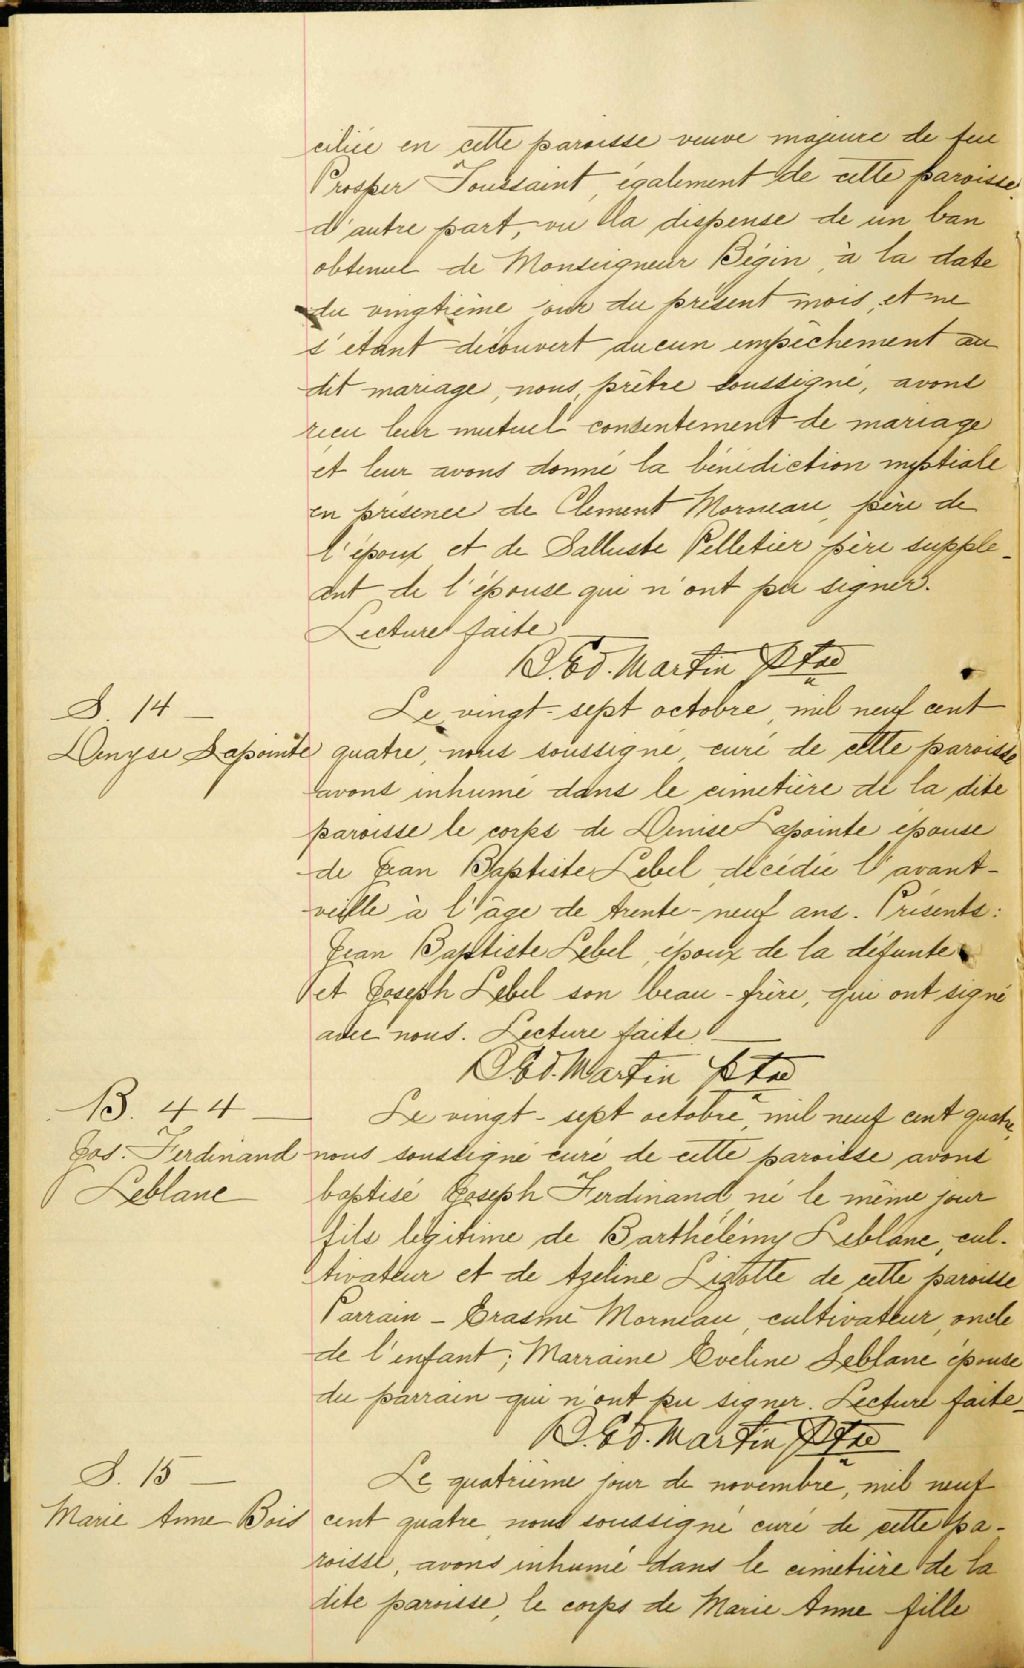 ciliée en cette paroisse veuve majeure de feu
Prosper Toussaint, également de cette paroisse
d'autre part, vu la dispense de un ban
obtenue de Monseigneur Bégin, à la date
du vingtième jour du présent mois, et ne
s'étant découvert aucun empêchement au
dit mariage, nous, prêtre soussigné, avons
reçu leur mutuel consentement de mariage
et leur avons donné la bénédiction nuptiale
en présence de Clement Morneau, père de
l'époux et de Salluste Pelletier père supplé-
ant de l'épouse qui n'ont pu signer.
Lecture faite
Ed. Martin Ptre
S. 14 –
Denyse Lapointe
Le vingt-sept octobre, mil neuf cent
quatre, nous soussigné, curé de cette paroisse
avons inhumé dans le cimetière de la dite
paroisse le corps de Denise Lapointe épouse
de Jean Baptiste Lebel, décédée l'avant-
veille à l'âge de trente-neuf ans. Présents:
Jean Baptiste Lebel, époux de la défunte
et Joseph Lebel son beau-frère, qui ont signé
avec nous. Lecture faite. —
Ed. Martin ptre
B. 44 —
Jos. Ferdinand
Leblanc
Le vingt-sept octobre, mil neuf cent quatre,
nous soussigné curé de cette paroisse avons
baptisé Joseph Ferdinand, né le même jour
fils légitime de Barthélémy Leblanc, cul-
tivateur et de Azeline Lizotte de cette paroisse
Parrain – Erasme Morneau, cultivateur, oncle
de l'enfant; Marraine Eveline Leblanc épouse
du parrain qui n'ont pu signer. Lecture faite –
Ed. Martin Ptre
S. 15 —
Marie Anne Bois
Le quatrième jour de novembre, mil neuf
cent quatre, nous soussigné curé de cette pa-
roisse, avons inhumé dans le cimetière de la
dite paroisse, le corps de Marie Anne fille